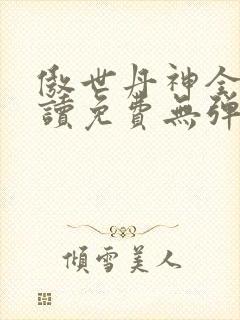 傲世丹神全
讀免費無彈
傾雪美人